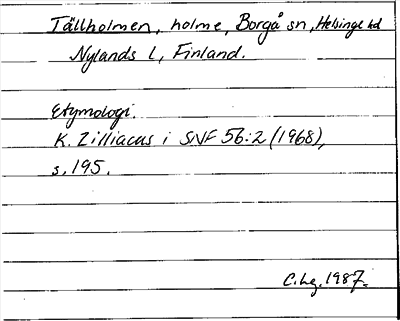 Tällholmen, holme, Borgå sn, Helsinge hd
Nylands l, Finland.
Etymologi.
K. Zilliacus i SNF 56:2 (1968),
s. 195.
C.Lg. 1987.